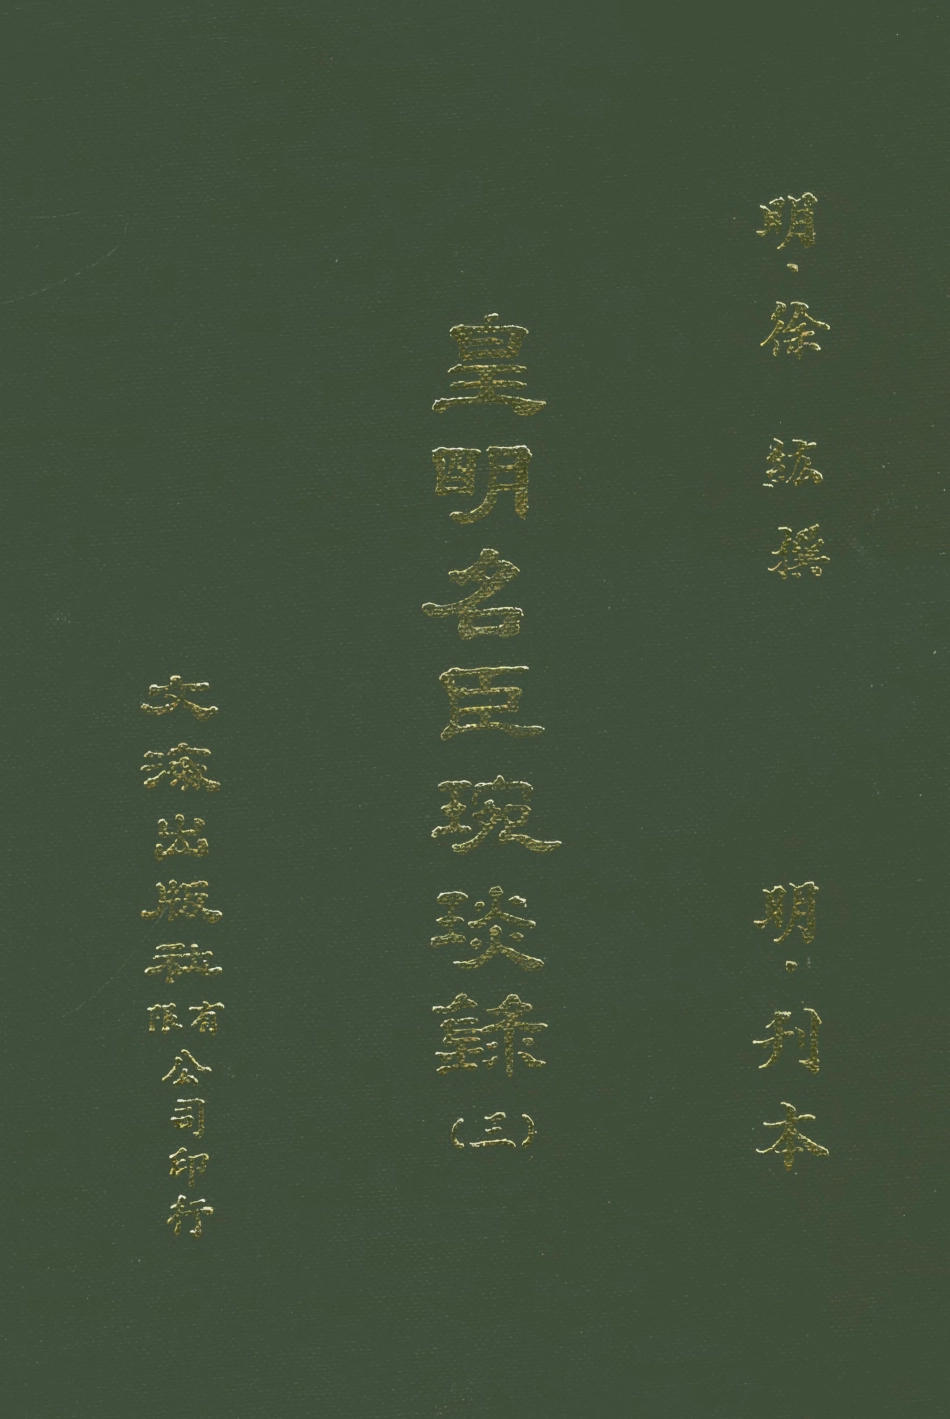 明·徐 紘撰 明·刊本
皇明名臣琬琰錄(三)
文海出版社有限公司印行